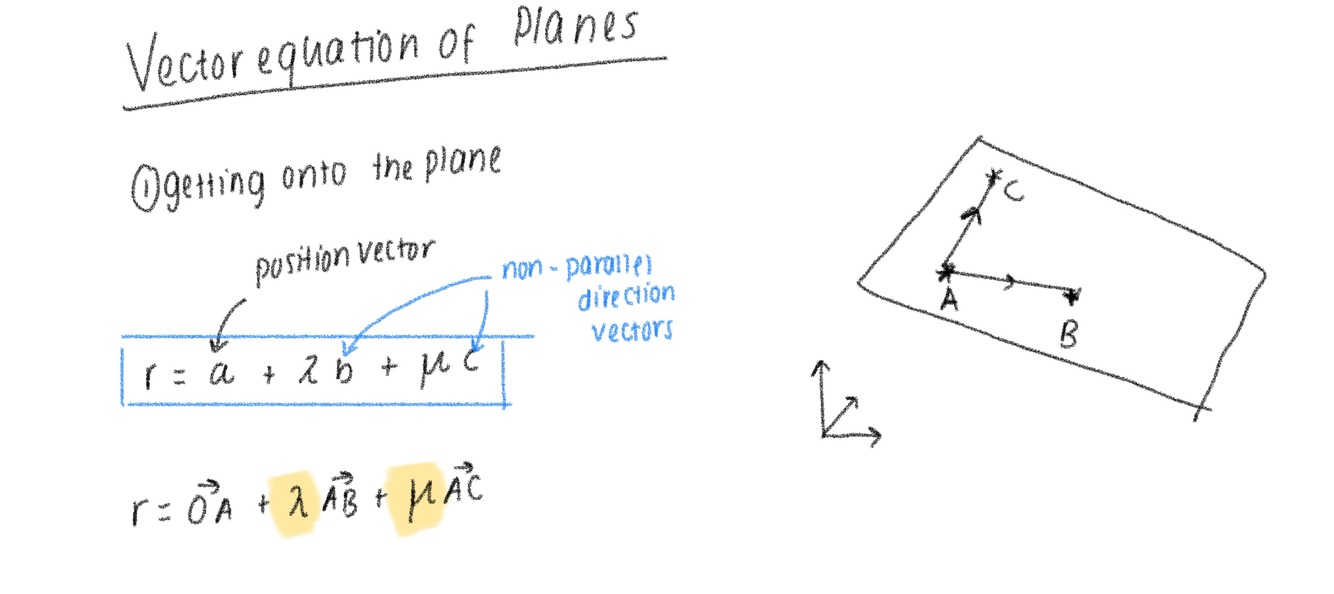 Vector equation of Planes
①getting onto the plane
position vector
non-parallel
direction
vectors
r = a + λ b + μ c
r = O⃗A + λ A⃗B + μ A⃗C
C
A
B